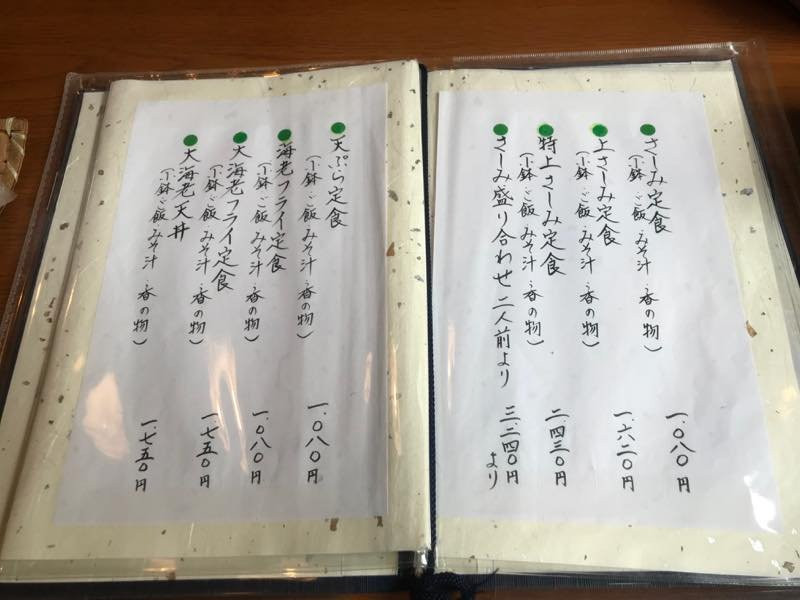 さしみ定食
(小鉢・ご飯・みそ汁・香の物)
一、〇八〇円
上さしみ定食
(小鉢・ご飯・みそ汁・香の物)
一、六二〇円
特上さしみ定食
(小鉢・ご飯・みそ汁・香の物)
二、四三〇円
さしみ盛り合わせ二人前より
三、二四〇円より
天ぷら定食
(小鉢・ご飯・みそ汁・香の物)
一、〇八〇円
海老フライ定食
(小鉢・ご飯・みそ汁・香の物)
一、〇八〇円
大海老フライ定食
(小鉢・ご飯・みそ汁・香の物)
一、七五〇円
大海老天丼
(小鉢・ご飯・みそ汁・香の物)
一、七五〇円